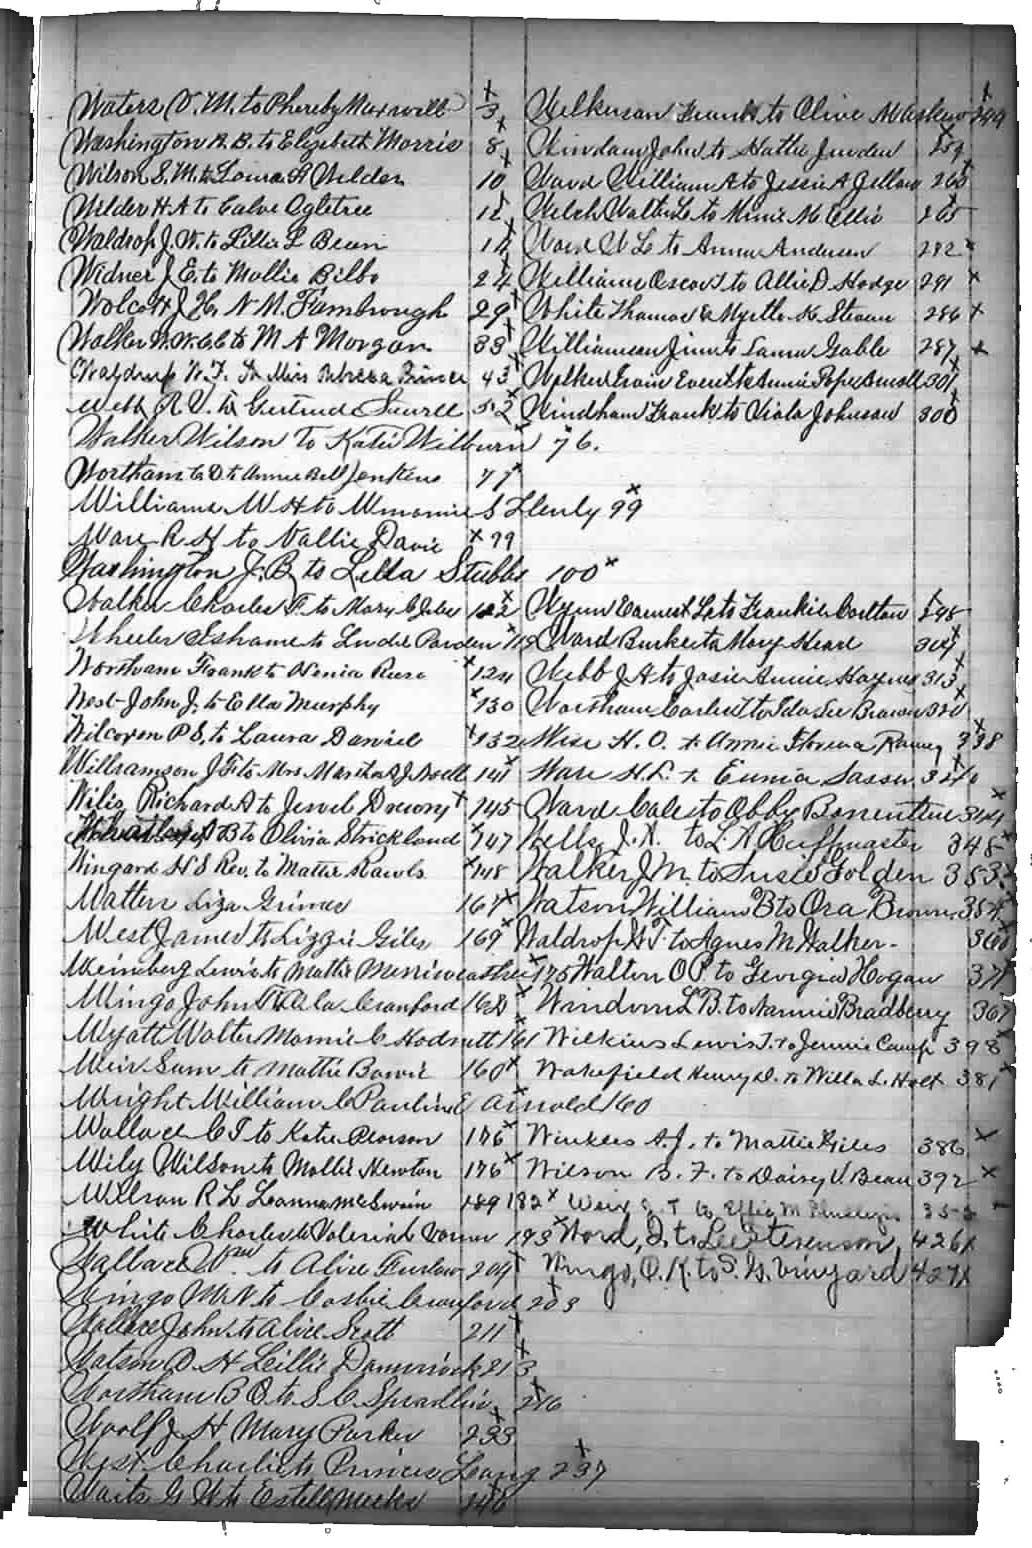 Waters V. M. to Phereby Maxwell 3
Washington A. B. to Elizabeth Morris 8
Wilson S. M. to Louisa A Welden 10
Welder H. A to Calve Ogletree 12
Waldrop J. W. to Lillie L Bean 14
Widner J E. to Mollie Bilbo 24
Wolcott J. H. N M. Fambrough 29
Walker to M A Morgan 33
Waldrup W. F. to Miss Rebecca Prince 43
Webb R V. to Gertrude Sewell 52
Walker Wilson to Katie Wilburn 76.
Wortham to Annie Bell Jenkins 77
Williams W H to S Henly 99
Ware R. H to Vallie Davis 99
Washington J. B. to Lella Stubbs 100
Walker Charles F. to Mary C Giles 122
Wheeler to Parden 119
Wortham Frank to Reese 124
West John J. to Ella Murphy 130
Wilcoxen P S. to Laura Daniel 132
Williamson J F to Mrs Martha J. 141
Wilis Richard D to Jewel Drewry 145
B to Olivia Strickland 147
Wingard H S Rev. to Mattie Rawls 148
Watters Liza Grimes 167
West James to Lizzie Giles 169
Weinberg Lewis to Mattie Merriweather 175
Wingo John F. Ala Crawford 162
Wyatt Walter Mamie C Hodnett 161
Weir Sam to Mattie Bowie 160
Wright William C Pauline E Arnold 160
Wallace C T to Katie Pearson 176
Wily Wilson to Mollie Newton 176
Wilson R L Leanna McSwain 189 182
White Charles to Valeriah Varner 193
Wallace W. to Alice Furlow 204
Wingo M N to Crawford 203
Wallace John to Alice Scott 211
Watson D H Lillie 213
Wortham B O to S C Spradlin 216
Woolf J H Mary Parker 233
West Charlie to Princess Long 237
Waits G W to Estelle Meeks 240
Wilkerson Frank to Olive M Askew 244
Windam John to Hattie Jurden 259
Ward William A to Jessie A 260
Welch Walter L. to Minnie M Ellis 265
Ward W L to Anna Anderson 282
Williams Oscar T to Allie D. Hodge 291
White Thomas to Myrtle K. Stroun 286
Williamson Jim to Laura Gable 287
Walker Everett to Annie Pope 301
Windham Frank to Viola Johnson 300
Wynn Earnest L. to Frankie Carlton 298
Ward Burke to Mary Heard 304
Webb J. H to Josie Annie Haynes 313
Wortham to Ida Lee Brown 320
Wise H. O. to Annie Florence Ramey 338
Ware H. L. to Eunice Sasser 340
Ward Cale to Abby Bonentine 344
Wells J. A. to L. A. Huffmaster 348
Walker J. M. to Susie Golden 353
Watson William B to Ora Brown 354
Waldrop H. T. to Agnes M. Walker - 360
Walton O P to Georgia Hogan 371
Windom L B. to Nannie Bradberry 367
Wilkins Lewis T. to Jennie Camp 398
Wakefield Henry D. to Willa L. Holt 381
Winkles A. J. to Mattie Giles 386
Wilson B. F. to Daisy V. Bean 392
Weir J. T. to Effie M Phillips 353
Word, I. to Lee Stevenson, 426
Wingo, O. K. to S. G. Vinyard 427